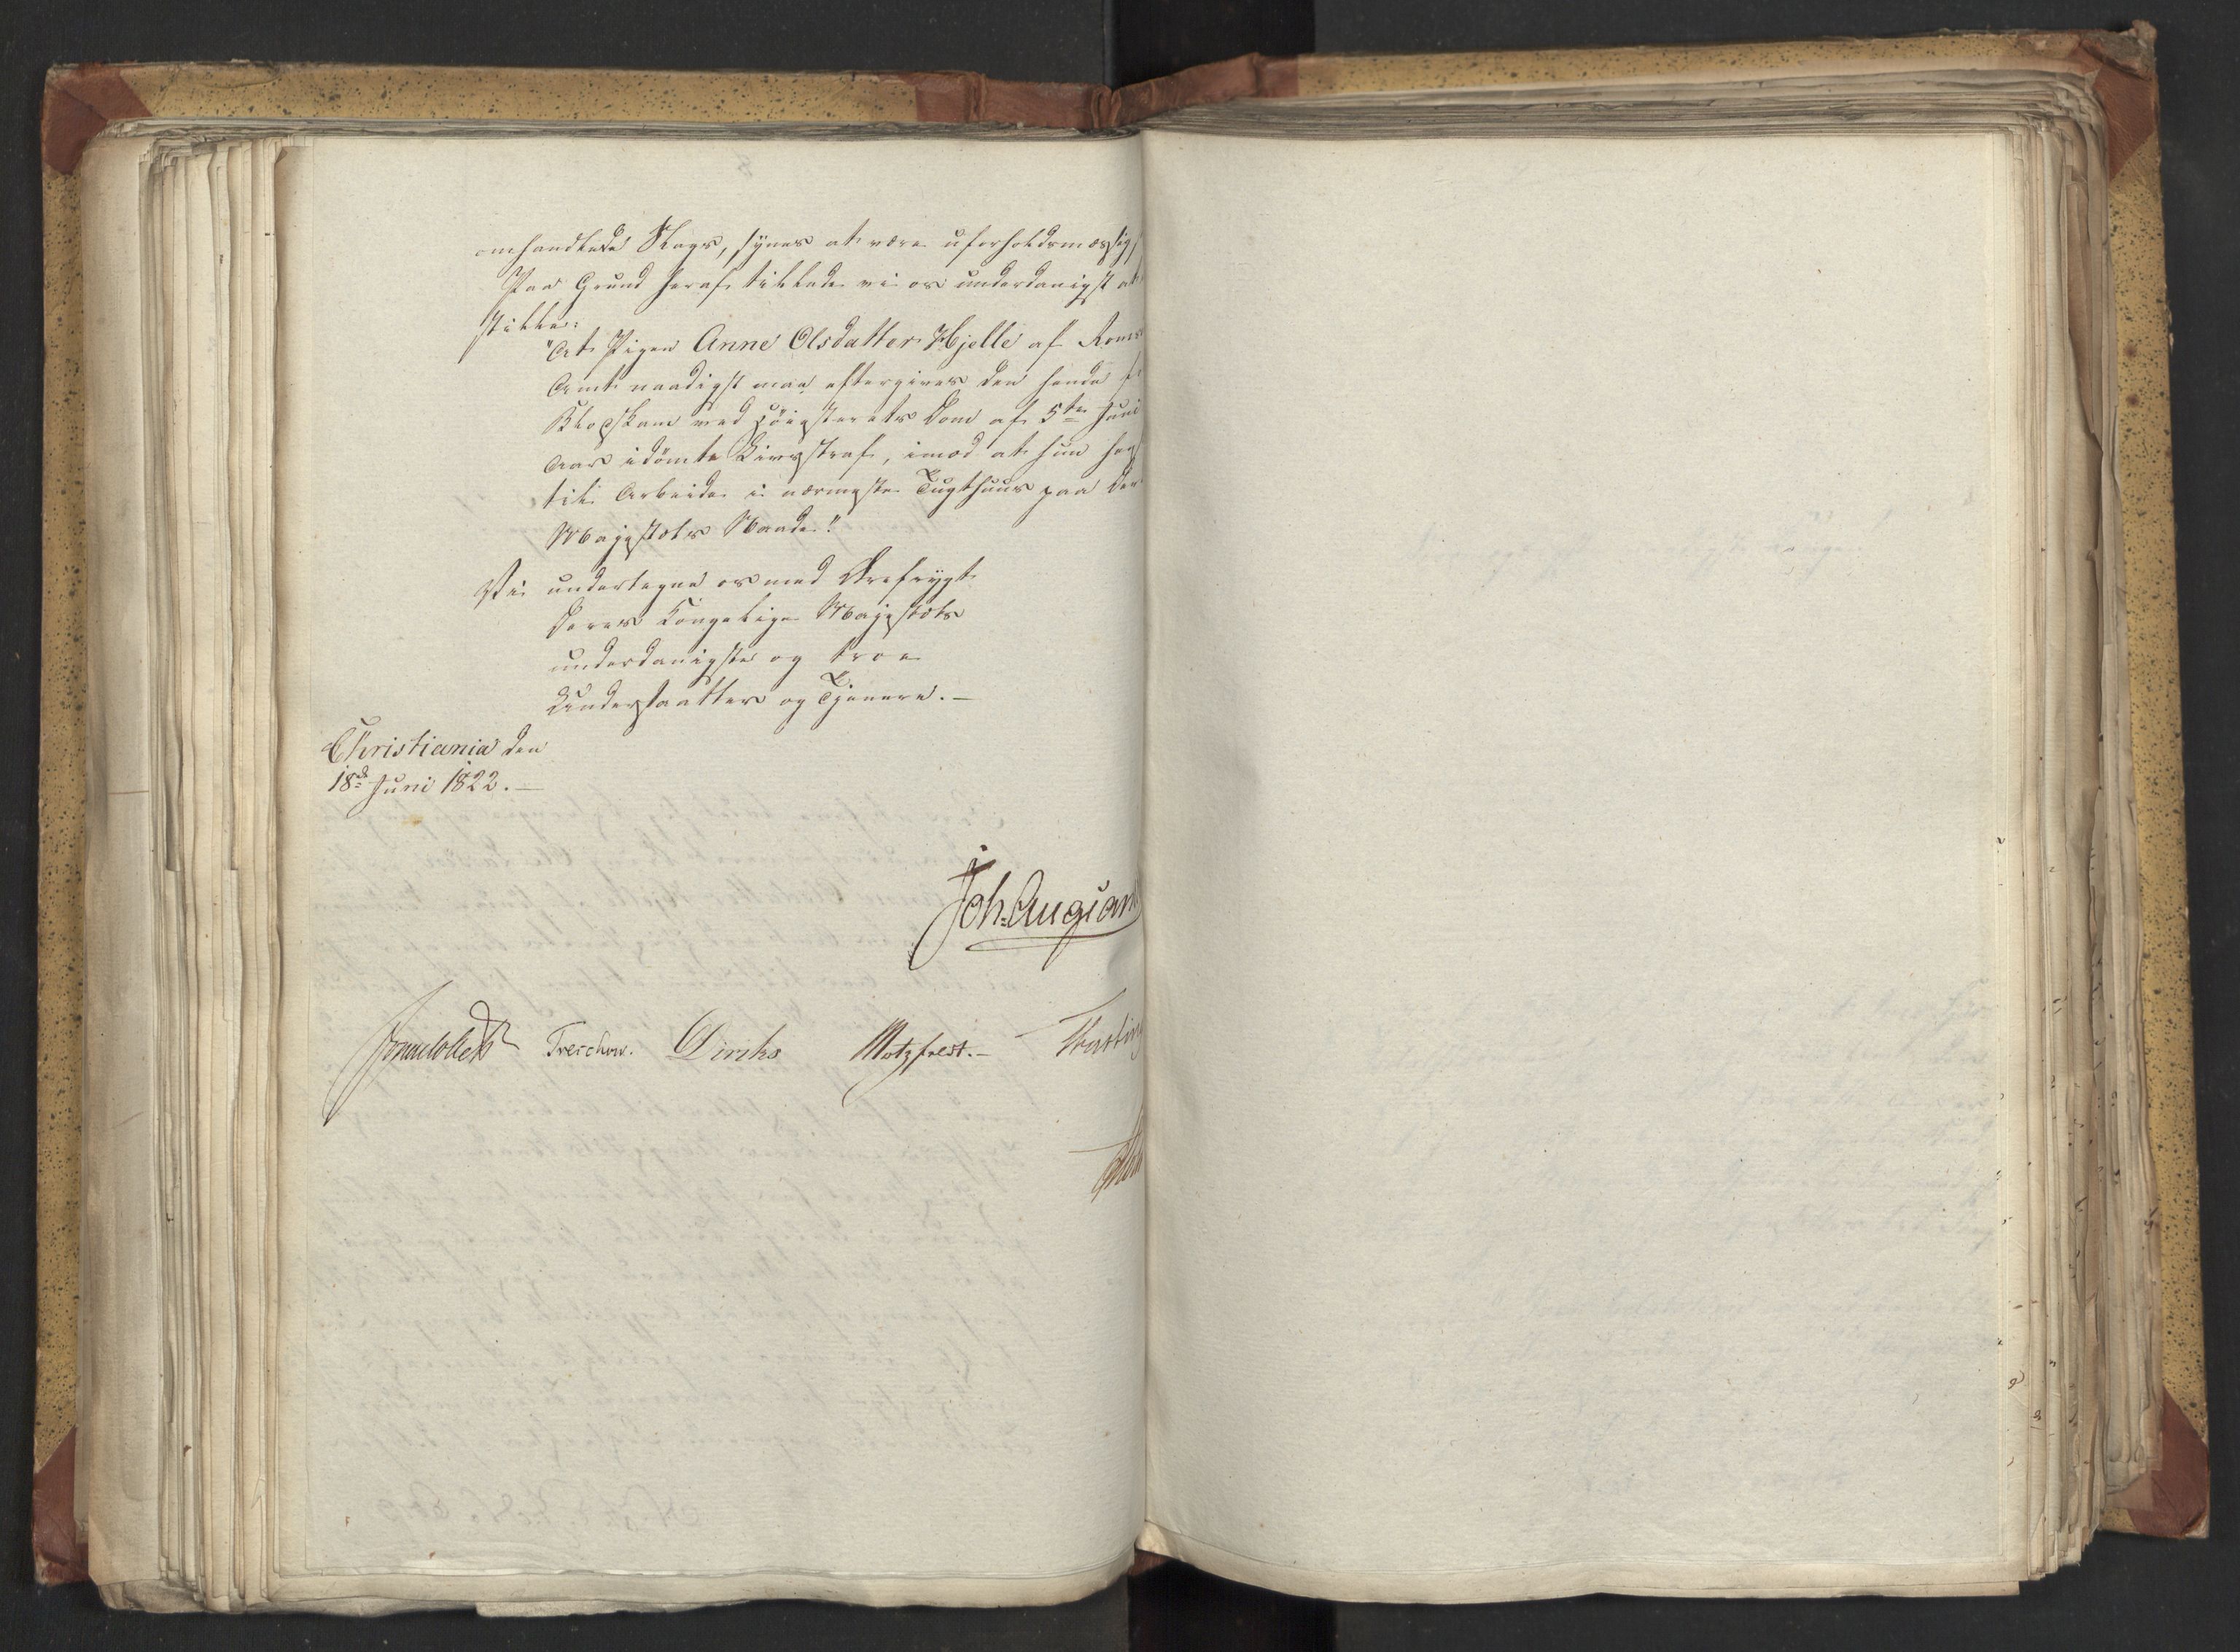 omhandlede Slags, synes at være uforholdsmæssig
Paa Grund heraf tillade vi os underdanigst at
stille:
"At Pigen Anne Olsdatter Hjelle af Roms
Amt naadigst maa eftergives den hende
Klogskam med Høiesterets Dom af 5te Juni
Aar idömte Livsstraf, imod at hun
til Arbeide i nærmeste Tugthuus paa Der
Majestæts Naade."
Vi undertegne os med Ærefrygt
Deres Kongelige Majestæts
underdanigste og troe
Undersaatter og Tjenere. —
Christiania den
18de Juni 1822. —
Joh: Aug: San
Sommelldt Treschow. Diriks Motzfeldt. —